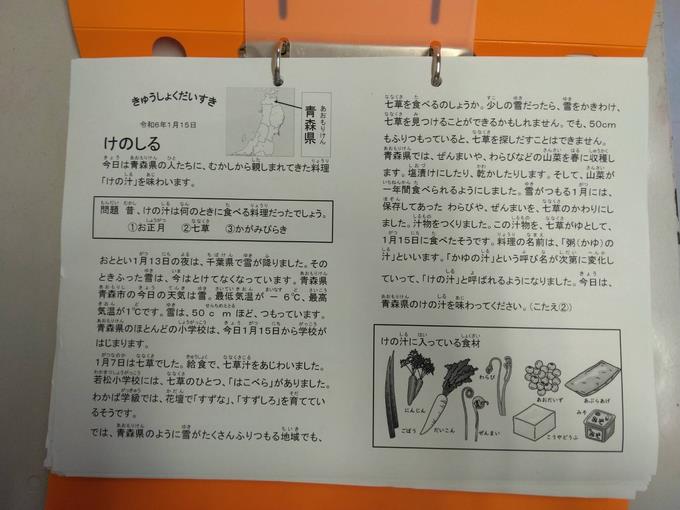 きゅうしょくだいすき
令和6年1月15日
青森県
あおもりけん
けのしる
今日は青森県の人たちに、むかしから親しまれてきた料理
「けの汁」を味わいます。
問題 昔、けの汁は何のときに食べる料理だったでしょう。
①お正月 ②七草 ③かがみびらき
おととい1月13日の夜は、千葉県で雪が降りました。その
ときふった雪は、今はとけてなくなっています。青森県
青森市の今日の天気は雪。最低気温が － 6℃、最高
気温が1℃です。雪は、50ｃｍほど、つもっています。
青森県のほとんどの小学校は、今日1月15日から学校が
はじまります。
1月7日は七草でした。給食で、七草汁をあじわいました。
若松小学校には、七草のひとつ、「はこべら」がありました。
わかば学級では、花壇で「すずな」、「すずしろ」を育ててい
るそうです。
では、青森県のように雪がたくさんふりつもる地域でも、
七草を食べるのでしょうか。少しの雪だったら、雪をかきわけ、
七草を見つけることができるかもしれません。でも、50cm
もふりつもっていると、七草を探しだすことはできません。
青森県では、ぜんまいや、わらびなどの山菜を春に収穫し
ます。塩漬けにしたり、乾かしたりします。そして、山菜が
一年間食べられるようにしました。雪がつもる1月には、
保存してあった わらびや、ぜんまいを、七草のかわりにし
ました。汁物をつくりました。この汁物を、七草がゆとして、
1月15日に食べたそうです。料理の名前は、「粥（かゆ）の
汁」といいます。「かゆの汁」という呼び名が次第に変化し
ていって、「けの汁」と呼ばれるようになりました。今日は、
青森県のけの汁を味わってください。（こたえ②）
けの汁に入っている食材
ごぼう
にんじん
だいこん
わらび
ぜんまい
あおだいず
こうやどうふ
あぶらあげ
みそ
みそ